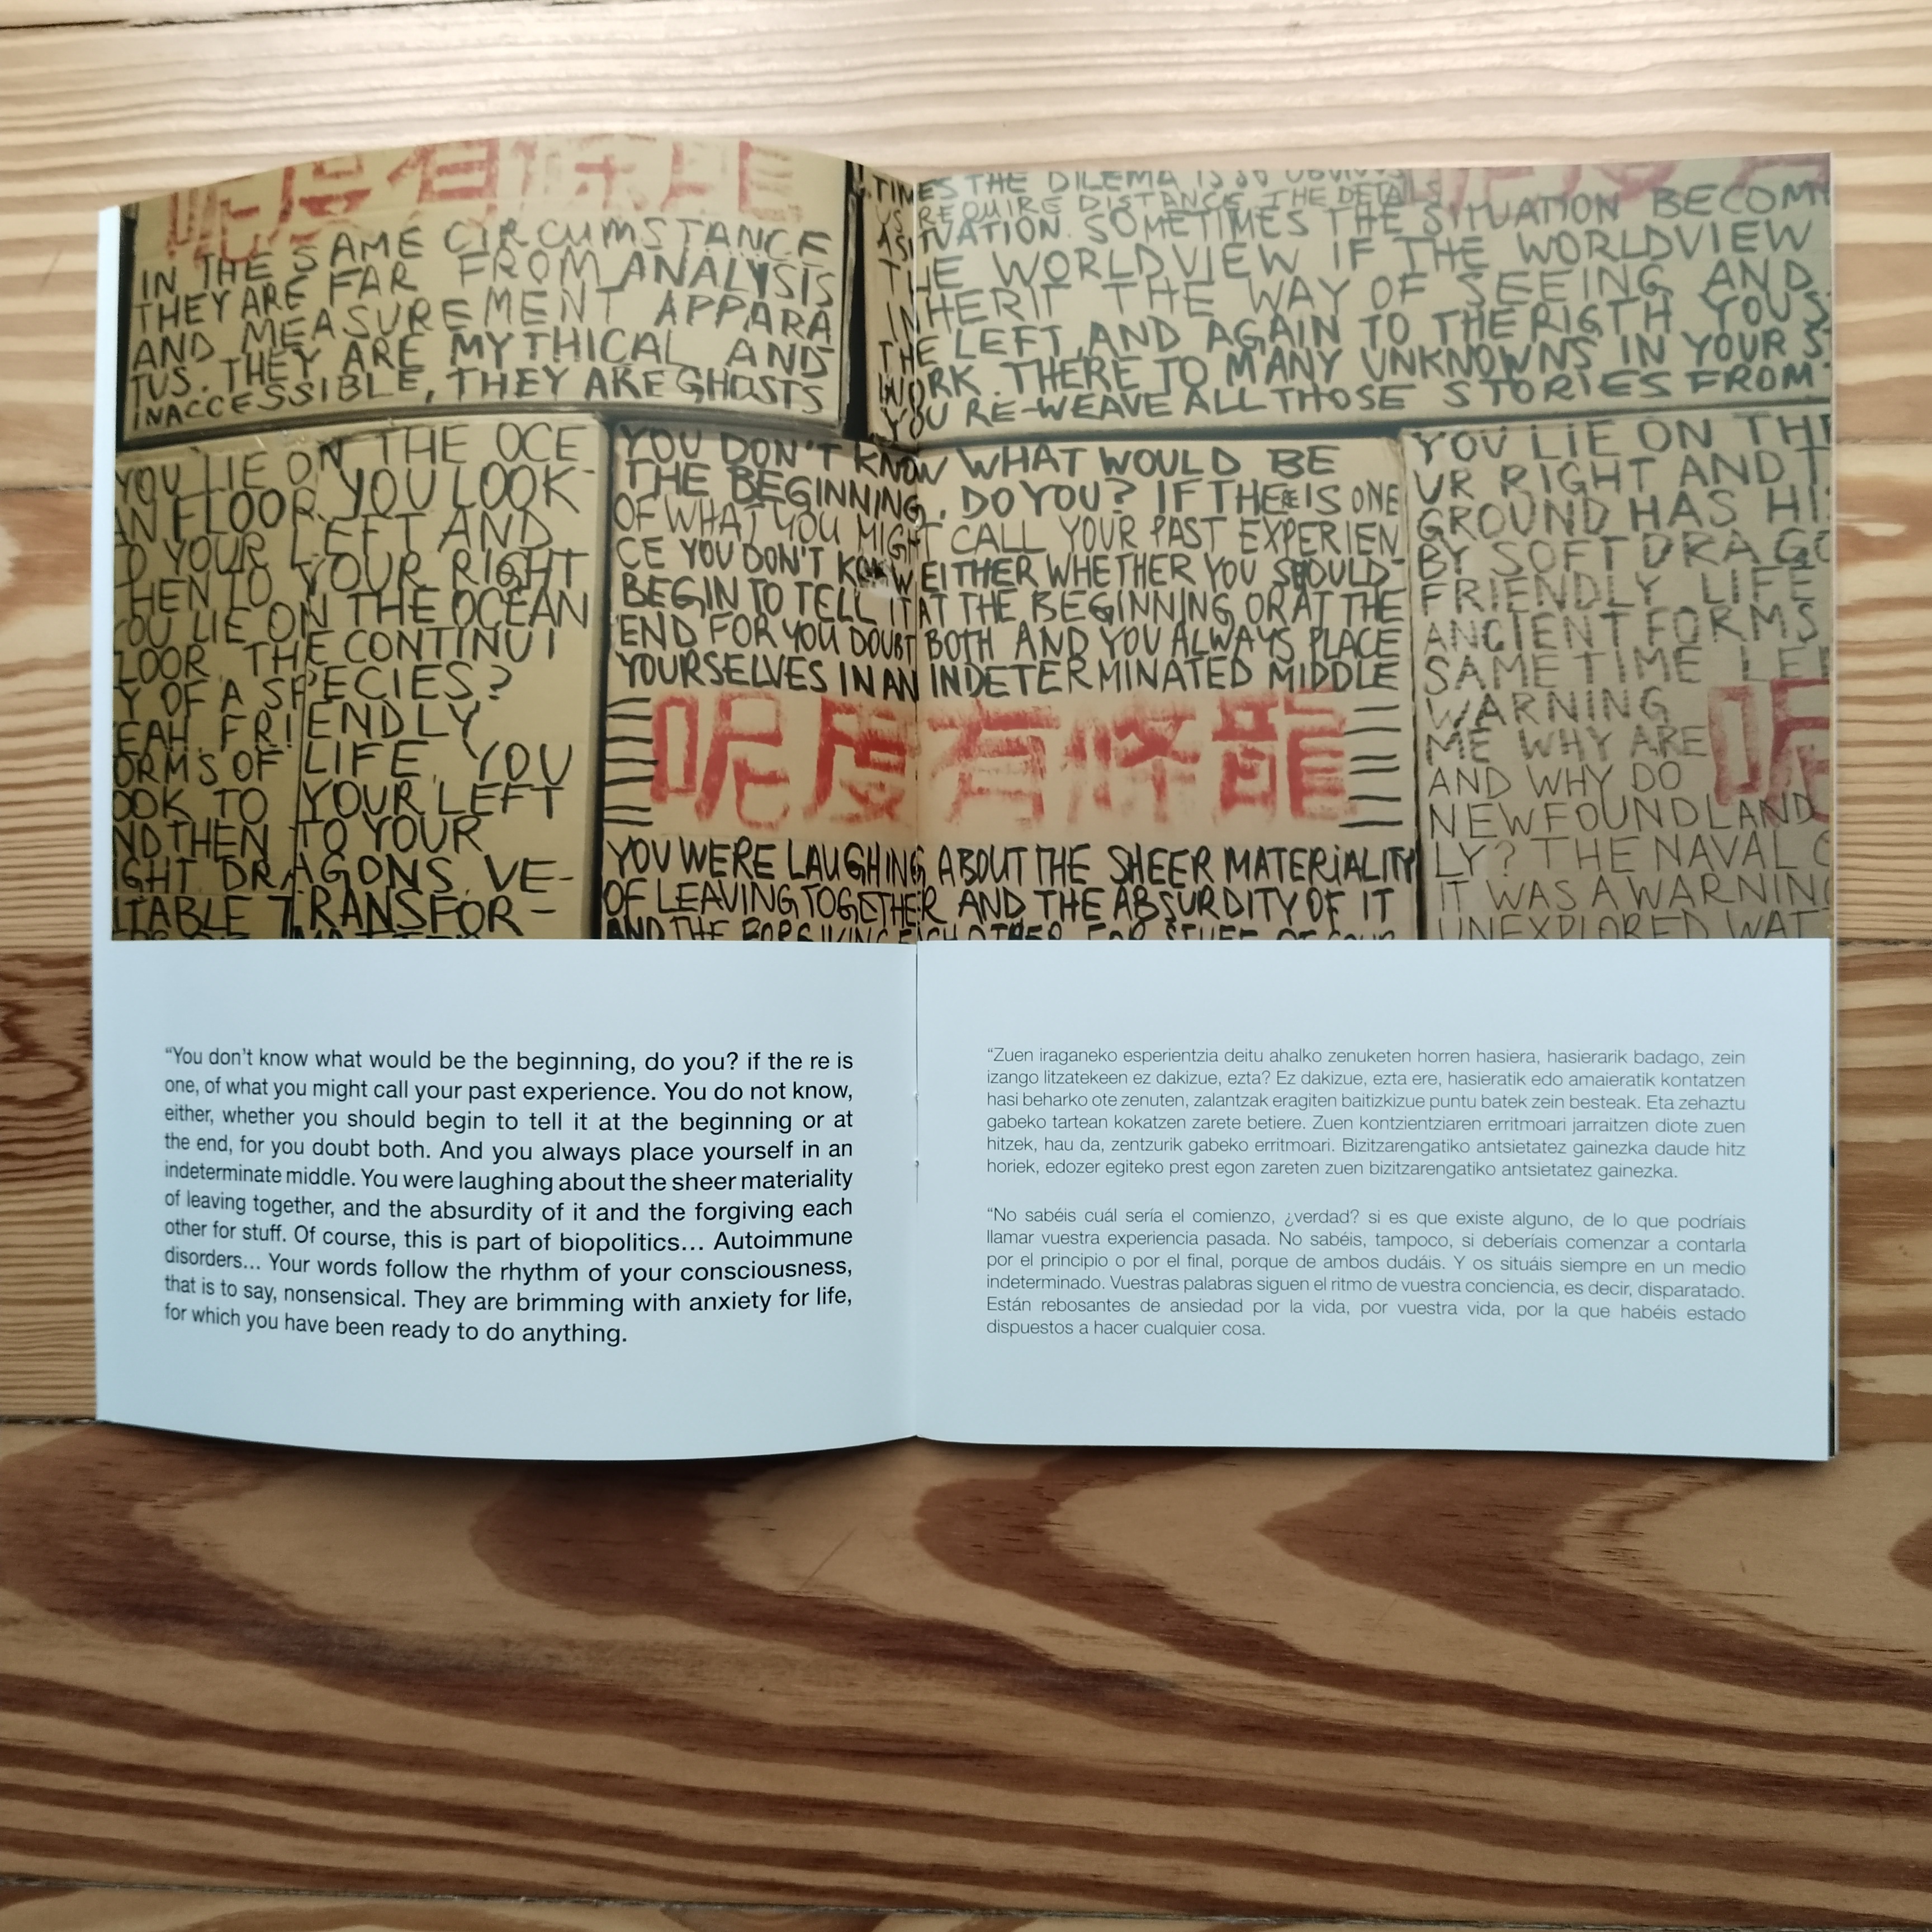 呢度有條龍
IN THE SAME CIRCUMSTANCE
THEY ARE FAR FROM ANALYSIS
AND MEASUREMENT APPARA
TUS. THEY ARE MYTHICAL AND
INACCESSIBLE, THEY ARE GHOSTS
TIMES THE DILEMA IS SO OBVIOUS
REQUIRE DISTANCE. THE DETAILS
TUATION. SOMETIMES THE SITUATION BECOM
THE WORLDVIEW IF THE WORLDVIEW
INHERIT THE WAY OF SEEING AND
THE LEFT AND AGAIN TO THE RIGTH YOU S
WORK. THERE TO MANY UNKNOWNS IN YOUR S
YOU RE-WEAVE ALL THOSE STORIES FROM
YOU LIE ON THE OCE
AN FLOOR YOU LOOK-
O YOUR LEFT AND
HEN TO YOUR RIGHT
YOU LIE ON THE OCEAN
LOOR. THE CONTINUI
Y OF A SPECIES?
EAH FRIENDLY
ORMS OF LIFE, YOU
OOK TO YOUR LEFT
ND THEN TO YOUR
IGHT DRAGONS. VE-
ITABLE TRANSFOR-
YOU DON'T KNOW WHAT WOULD BE
THE BEGINNING, DO YOU? IF THERE IS ONE
OF WHAT YOU MIGHT CALL YOUR PAST EXPERIEN
CE YOU DON'T KNOW EITHER WHETHER YOU SHOULD-
BEGIN TO TELL IT AT THE BEGINNING OR AT THE
END FOR YOU DOUBT BOTH AND YOU ALWAYS PLACE
YOURSELVES IN AN INDETERMINATED MIDDLE
呢度有條龍
YOU WERE LAUGHING ABOUT THE SHEER MATERIALITY
OF LEAVING TOGETHER AND THE ABSURDITY OF IT
AND THE FORGIVING EACH OTHER FOR STUFF OF COUR
YOU LIE ON THE
UR RIGHT AND T
GROUND HAS HI
BY SOFT DRAGO
FRIENDLY LIFE
ANCIENT FORMS
SAME TIME LE
WARNING
ME WHY ARE
AND WHY DO 呢
NEWFOUNDLAND
LY? THE NAVAL C
IT WAS A WARNING
UNEXPLORED WAT
“You don’t know what would be the beginning, do you? if the re is
one, of what you might call your past experience. You do not know,
either, whether you should begin to tell it at the beginning or at
the end, for you doubt both. And you always place yourself in an
indeterminate middle. You were laughing about the sheer materiality
of leaving together, and the absurdity of it and the forgiving each
other for stuff. Of course, this is part of biopolitics… Autoimmune
disorders… Your words follow the rhythm of your consciousness,
that is to say, nonsensical. They are brimming with anxiety for life,
for which you have been ready to do anything.
“Zuen iraganeko esperientzia deitu ahalko zenuketen horren hasiera, hasierarik badago, zein
izango litzatekeen ez dakizue, ezta? Ez dakizue, ezta ere, hasieratik edo amaieratik kontatzen
hasi beharko ote zenuten, zalantzak eragiten baitizkizue puntu batek zein besteak. Eta zehaztu
gabeko tartean kokatzen zarete betiere. Zuen kontzientziaren erritmoari jarraitzen diote zuen
hitzek, hau da, zentzurik gabeko erritmoari. Bizitzarengatiko antsietatez gainezka daude hitz
horiek, edozer egiteko prest egon zareten zuen bizitzarengatiko antsietatez gainezka.
“No sabéis cuál sería el comienzo, ¿verdad? si es que existe alguno, de lo que podríais
llamar vuestra experiencia pasada. No sabéis, tampoco, si deberíais comenzar a contarla
por el principio o por el final, porque de ambos dudáis. Y os situáis siempre en un medio
indeterminado. Vuestras palabras siguen el ritmo de vuestra conciencia, es decir, disparatado.
Están rebosantes de ansiedad por la vida, por vuestra vida, por la que habéis estado
dispuestos a hacer cualquier cosa.